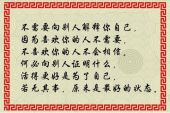 不需要向别人解释你自己，
因为喜欢你的人不需要，
不喜欢你的人不会相信。
何必向别人证明什么，
活得更好是为了自己，
若无其事，原来是最好的状态。